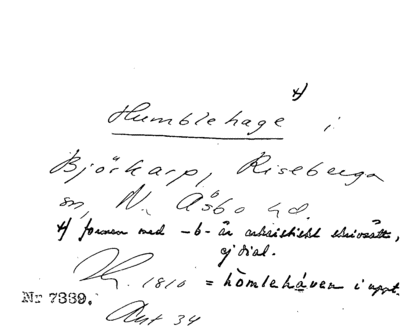 x)
Humblehage i
Björkarp, Riseberga
sn, N. Åsbo hd.
x) formen med -b- är arkaistiskt skrivsätt,
ej dial.
1810 = hömlehåven i uppt.
Nr 7339.
Ant 34